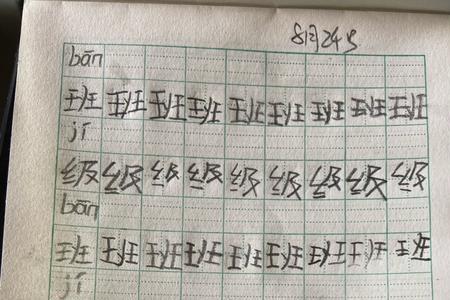 8月24号
bān
班 班 班 班 班 班 班 班 班
jí
级 级 级 级 级 级 级 级 级
bān
班 班 班 班 班 班 班 班 班
jí